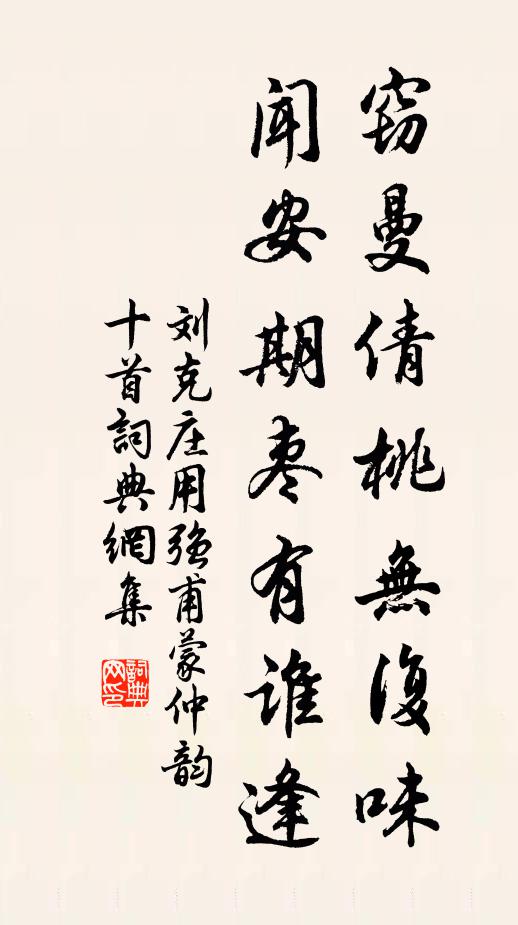 窃曼倩桃無復味
聞安期枣有谁逢
刘克庄用强甫蒙仲韵
十首詞典網集
詞典网印